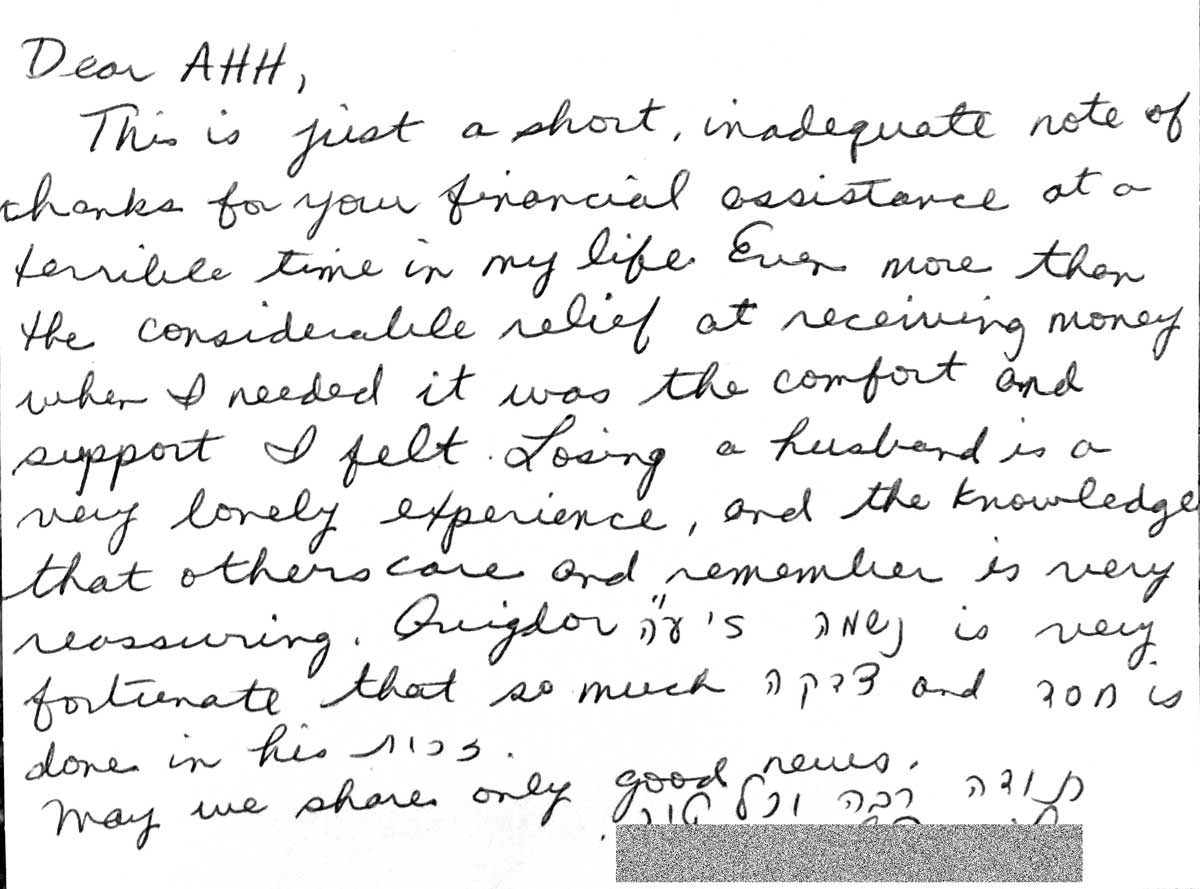 Dear AHH,
This is just a short, inadequate note of
thanks for your financial assistance at a
terrible time in my life. Even more than
the considerable relief at receiving money
when I needed it was the comfort and
support I felt. Losing a husband is a
very lonely experience, and the knowledge
that others care and remember is very
reassuring. Avigdor נשמה is very
fortunate that so much צדקה and חסד is
done in his זכות.
May we share only good news.
תודה רבה וכל טוב